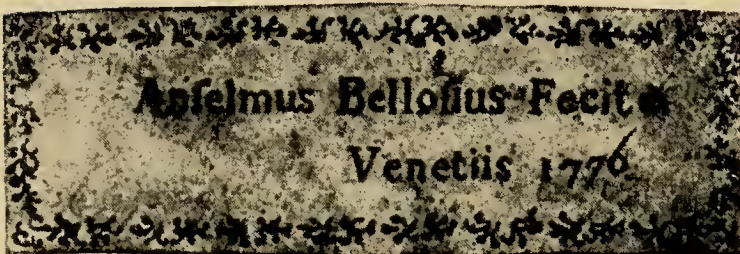 Anſelmus Belloſius Fecit
Venetiis 1776